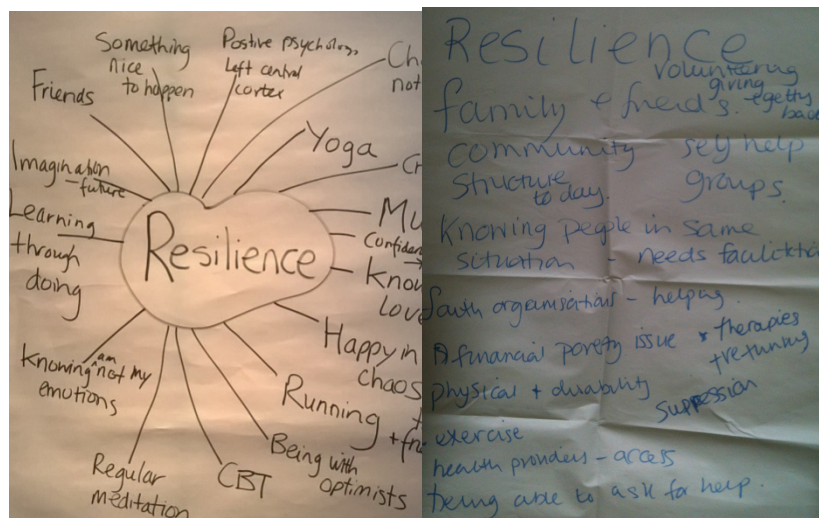 Something
nice
to happen
Postive psychology
Left central
cortex
Ch
not
Friends
Yoga
Imagination
- future
Learning
through
doing
Resilience
Mu
Confiden
Know
Love
Happy in
chaos
Knowing am not my
emotions
Running
+ fr
Being with
optimists
CBT
Regular
meditation
Resilience
volunteering
giving
family + friends. + getting
back
community self help
structure groups.
to day.
Knowing people in same
situation - needs
faith organisations - helping
financial poverty issue
* therapies
+ retuning
physical + durability
suppression
exercise
health providers - access
being able to ask for help.